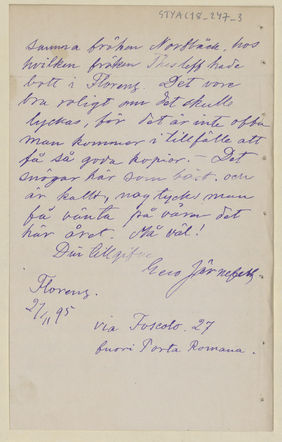 STYA(18_247_3
samma fröken Nordbäck, hos
hvilken fröken Thesleff hade
bott i Florenz. Det vore
bra roligt om det skulle
lyckas, för det är inte ofta
man kommer i tillfälle att
få så goda kopior. – Det
snögar här som bäst och
är kallt, nog tycks man
få vänta på våren det
här året. Må väl!
Din tillgifne
Eero Järnefelt.
Florenz.
27/II 95
via Foscolo. 27
fuori Porta Romana.